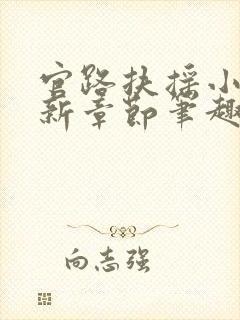 官路扶摇小
新章节笔趣
向志强